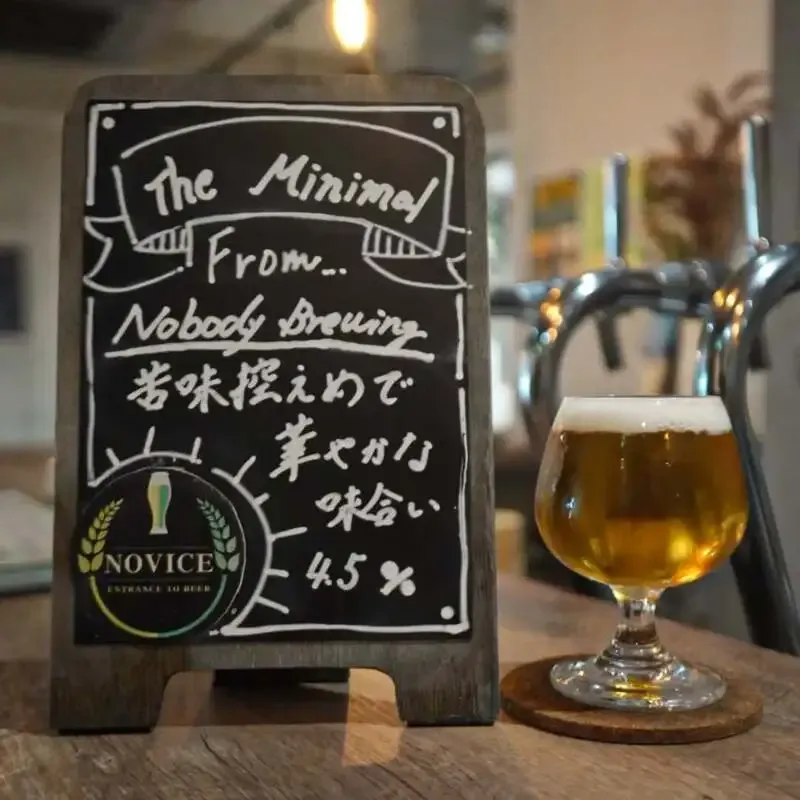 The Minimal
From...
Nobody Brewing
苦味控えめで
華やかな
味合い
4.5 %
NOVICE
ENTRANCE TO BEER